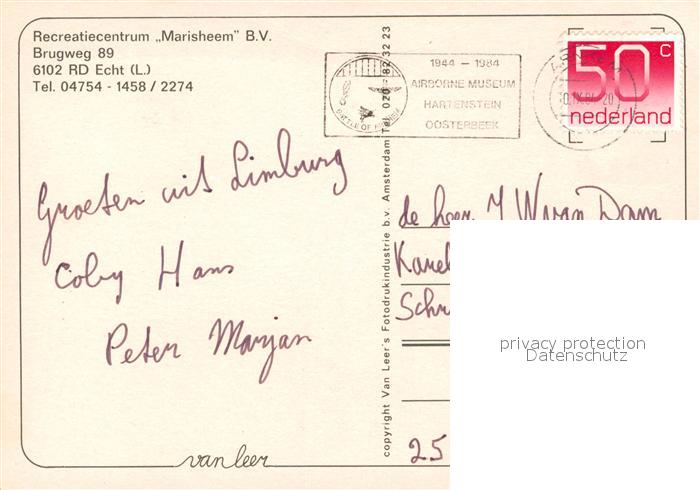 Recreatiecentrum „Marisheem" B.V.
Brugweg 89
6102 RD Echt (L.)
Tel. 04754 - 1458 / 2274
1944 - 1984
AIRBORNE MUSEUM
HARTENSTEIN
OOSTERBEEK
BATTLE OF
50 c
nederland
Groeten uit Limburg
Coby Hans
Peter Marjan
copyright Van Leer's Fotodrukindustrie b.v. Amsterdam Tel. 020 - 82 32 23
de heer J W van Dam
Karel
Schr
25
privacy protection
Datenschutz
van leer